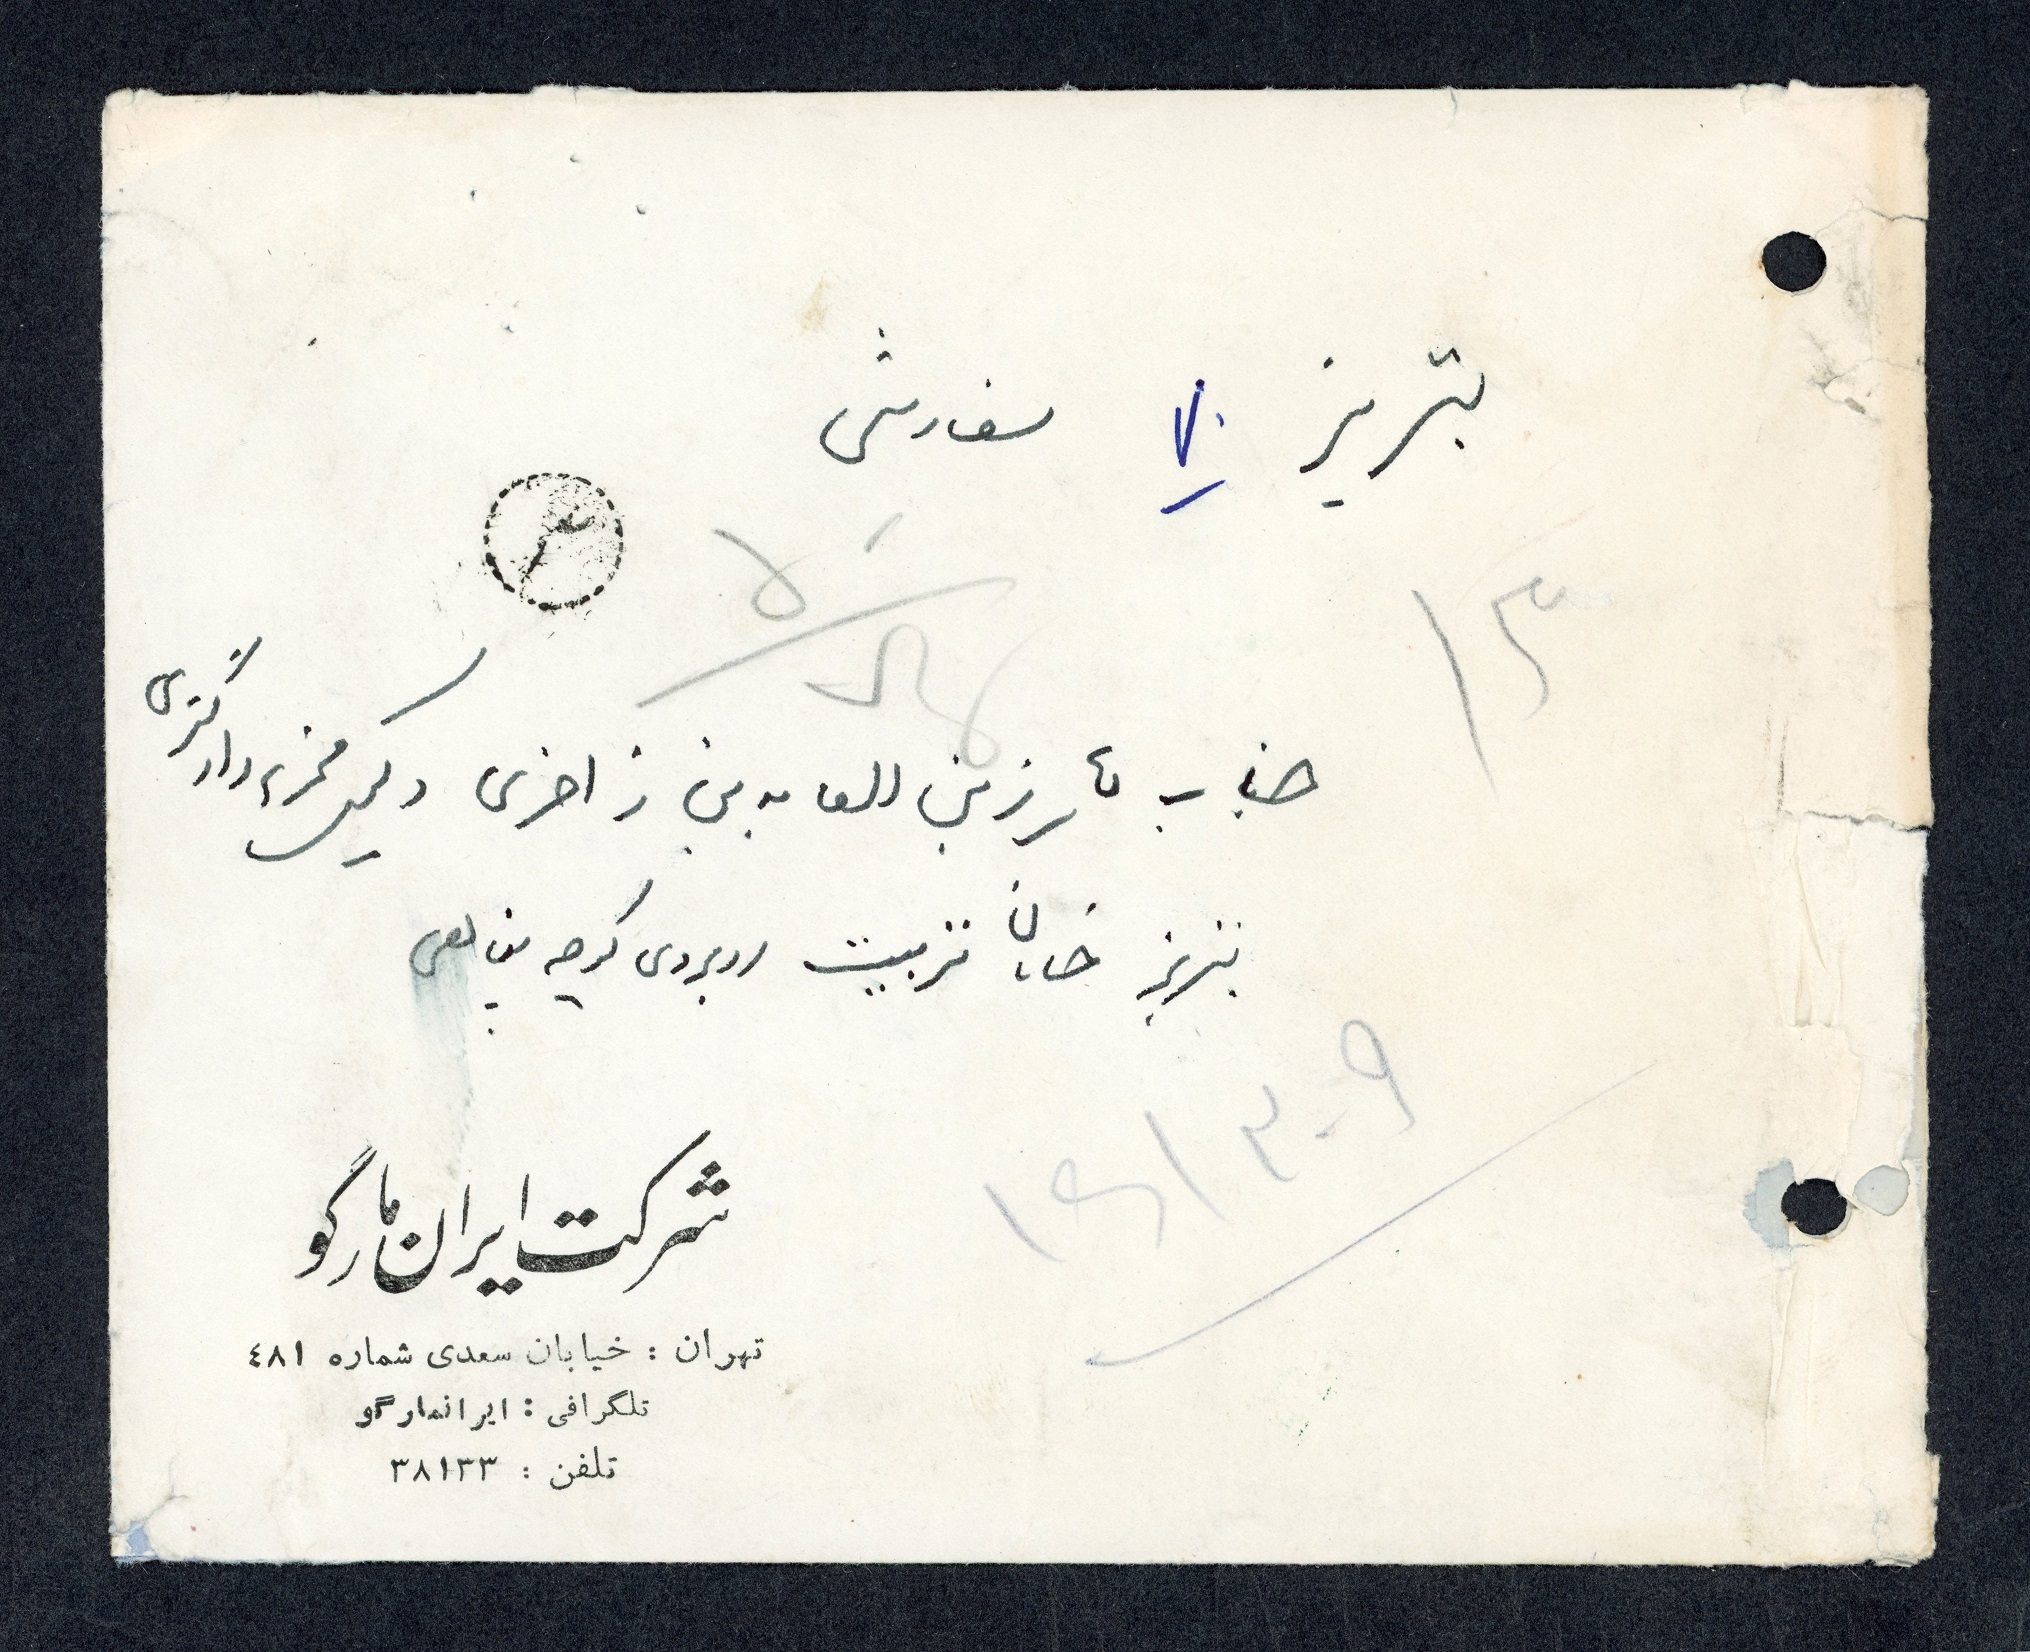 تبریز سفارشی
۱۳
جناب آقای زین العابدین وکیل محترم دادگستری
تبریز خیابان تربیت روبروی کوچه
شرکت ایران مارگو
تهران : خیابان سعدی شماره ٤٨١
تلگرافی : ایرانمارگو
تلفن : ٣٨١٣٣